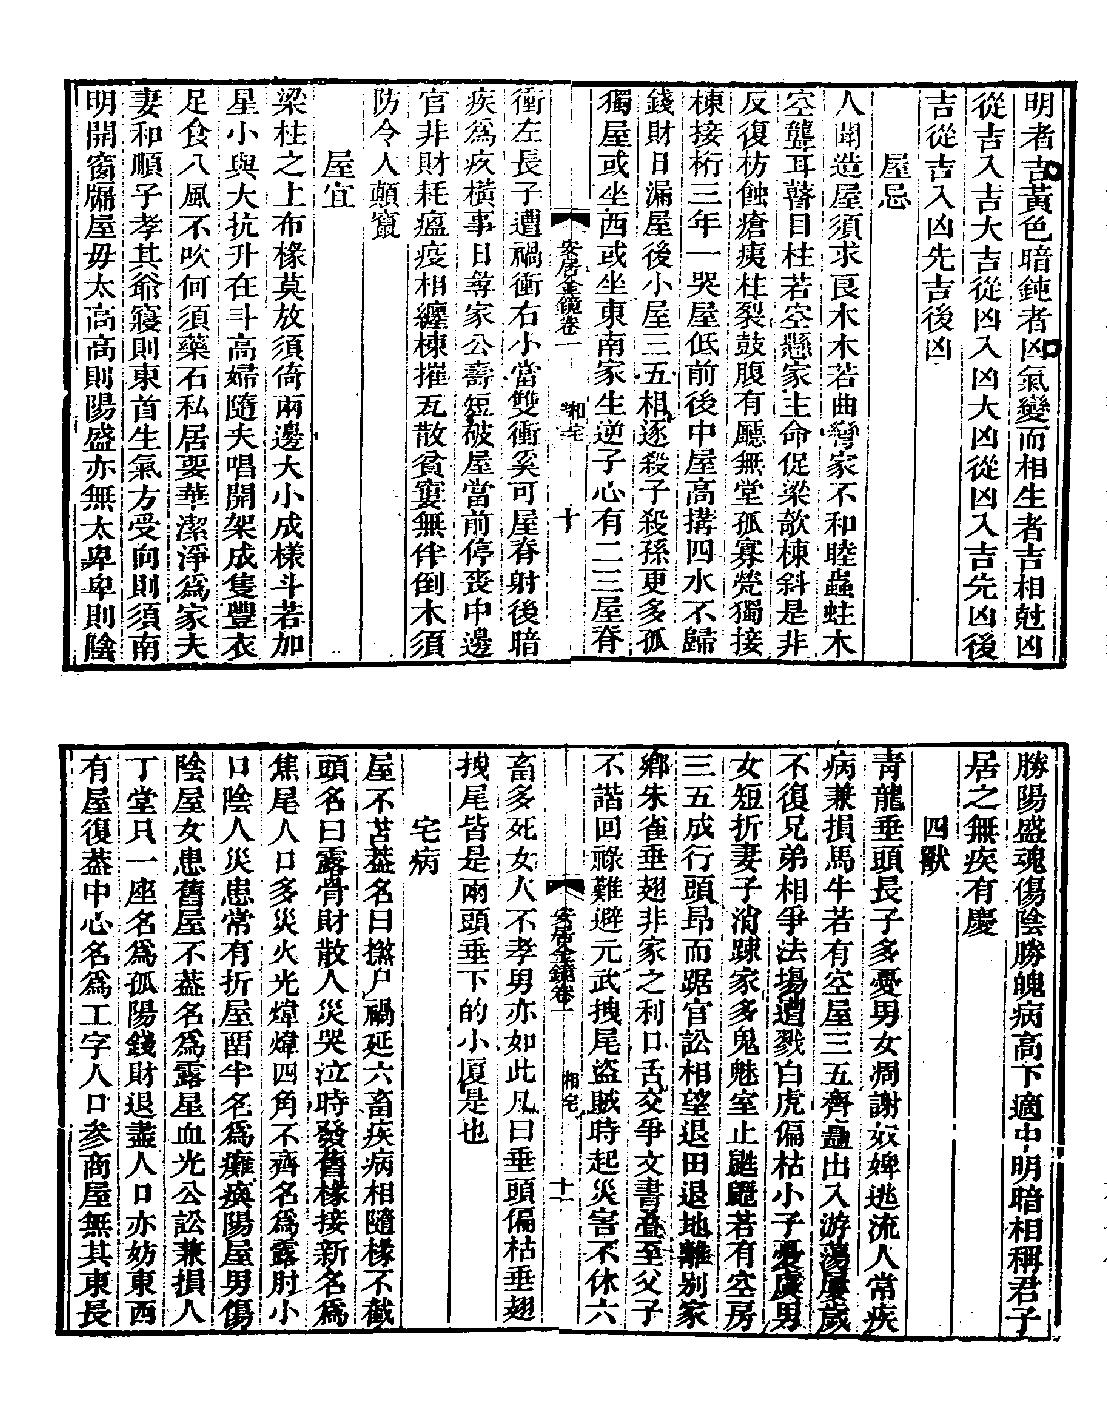 明者吉黃色暗鈍者凶氣變而相生者吉相尅凶
從吉入吉大吉從凶入凶大凶從凶入吉先凶後
吉從吉入凶先吉後凶
屋忌
人間造屋須求良木木若曲彎家不和睦蟲蛀木
空聾耳瞽目柱若空懸家主命促梁欹棟斜是非
反復枋蝕瘡痍柱裂鼓腹有廳無堂孤寡煢獨接
棟接桁三年一哭屋低前後中屋高搆四水不歸
錢財日漏屋後小屋三五相逐殺子殺孫更多孤
獨屋或坐西或坐東南家生逆子心有二三屋脊
安居金鏡卷一 相宅 十
衝左長子遭禍衝右小當雙衝奚可屋脊射後暗
疾爲疚橫事日尋家公壽短破屋當前停喪中邊
官非財耗瘟疫相纏棟摧瓦散貧窶無伴倒木須
防令人顛竄
屋宜
梁柱之上布椽莫放須倚兩邊大小成樣斗若加
星小與大抗升在斗高婦隨夫唱開架成隻豐衣
足食八風不吹何須藥石私居要華潔淨爲家夫
妻和順子孝其爺寢則東首生氣方受向則須南
明開窗牖屋毋太高高則陽盛亦無太卑卑則陰
勝陽盛魂傷陰勝魄病高下適中明暗相稱君子
居之無疾有慶
四獸
青龍垂頭長子多憂男女凋謝奴婢逃流人常疾
病兼損馬牛若有空屋三五齊矗出入游蕩屢歲
不復兄弟相爭法場遭戮白虎偏枯小子憂虞男
女短折妻子消踈家多鬼魅室止鼪鼯若有空房
三五成行頭昂而踞官訟相望退田退地離別家
鄉朱雀垂翅非家之利口舌交爭文書叠至父子
不諧回祿難避元武拽尾盜賊時起災害不休六
安居金鏡卷一 相宅 十一
畜多死女人不孝男亦如此凡曰垂頭偏枯垂翅
拽尾皆是兩頭垂下的小廈是也
宅病
屋不苫蓋名曰撫尸禍延六畜疾病相隨椽不截
頭名曰露骨財散人災哭泣時發舊椽接新名爲
焦尾人口多災火光煒煒四角不齊名爲露肘小
口陰人災患常有折屋畱半名爲癱瘓陽屋男傷
陰屋女患舊屋不葢名爲露星血光公訟兼損人
丁堂只一座名爲孤陽錢財退盡人口亦妨東西
有屋復葢中心名爲工字人口參商屋無其東長